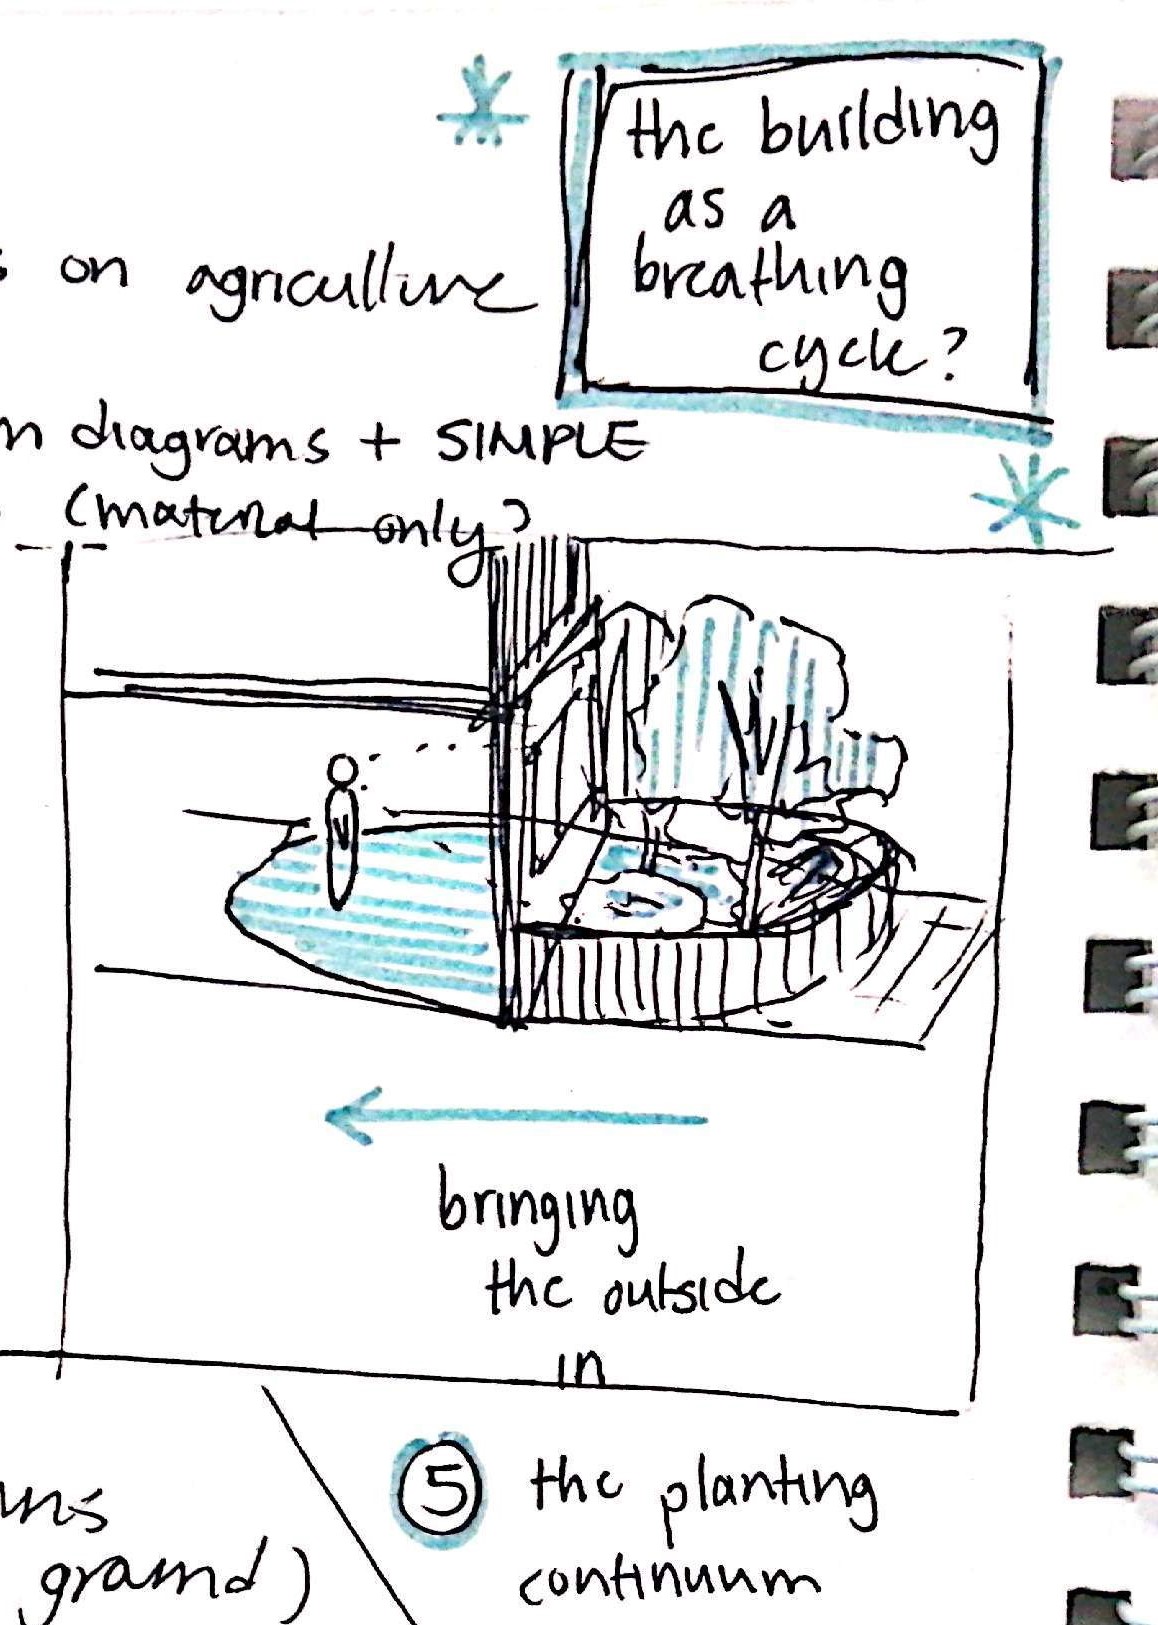 the building
as a
breathing
cycle?
on agriculture
diagrams + SIMPLE
(material only?
bringing
the outside
in
5 the planting
continuum
ground)